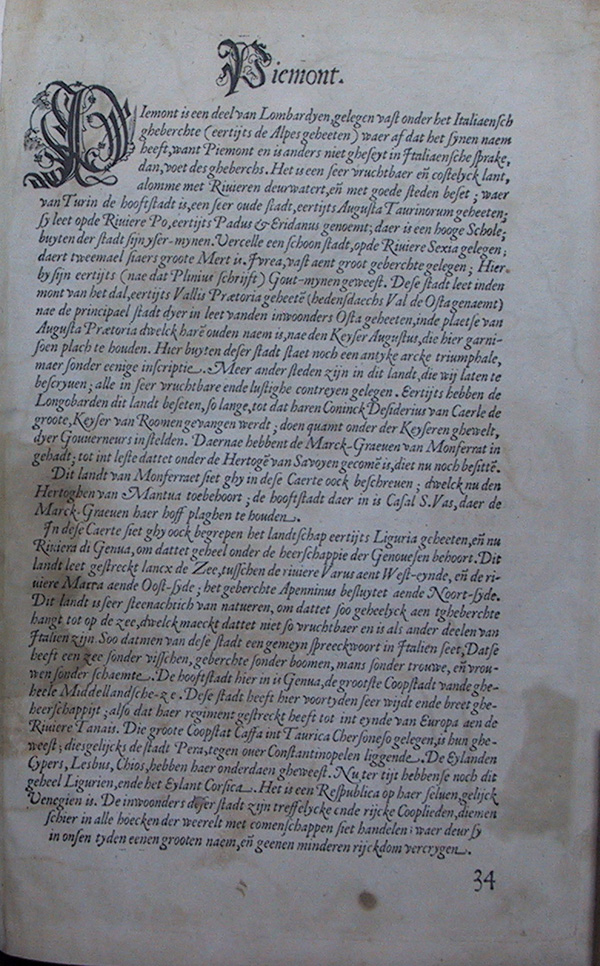 Piemont.
PIemont is een deel van Lombardyen, gelegen vast onder het Italiaensch
gheberchte (eertijts de Alpes geheeten) waer af dat het synen naem
heeft, want Piemont en is anders niet gheseyt in Italiaensche sprake,
dan, voet des gheberchs. Het is een seer vruchtbaer eñ costelyck lant,
alomme met Riuieren deurwatert, eñ met goede steden beset; waer
van Turin de hooftstadt is, een seer oude stadt, eertijts Augusta Taurinorum geheeten;
sy leet op de Riuiere Po, eertijts Padus & Eridanus genoemt; daer is een hooge Schole;
buyten der stadt sijn yser-mynen. Vercelle een schoon stadt, op de Riuiere Sexia gelegen;
daert tweemael siaers groote Mert is. Jvrea, vast aent groot geberchte gelegen; Hier
by sijn eertijts (nae dat Plinius schrijft) Gout-mynen geweest. Dese stadt leet inden
mont van het dal, eertijts Vallis Prætoria geheetē (hedensdaechs Val de Osta genaemt)
nae de principael stadt dyer in leet vanden inwoonders Osta geheeten, inde plaetse van
Augusta Prætoria dwelck harē ouden naem is, nae den Keyser Augustus, die hier garni-
soen plach te houden. Hier buyten deser stadt staet noch een antyke arcke triumphale,
maer sonder eenige inscriptie. Meer ander steden zijn in dit landt, die wij laten te
bescryuen; alle in seer vruchtbare ende lustighe contreyen gelegen. Eertijts hebben de
Longobarden dit landt beseten, so lange, tot dat haren Coninck Desiderius van Caerle de
groote, Keyser van Roomen gevangen werdt; doen quamt onder der Keyseren ghewelt,
dyer Gouuerneurs in stelden. Daernae hebbent de Marck-Graeuen van Monferrat in
gehadt; tot int leste dattet onder de Hertogē van Savoyen gecomē is, diet nu noch besittē.
Dit landt van Monferraet siet ghy in dese Caerte oock beschreuen; dwelck nu den
Hertoghen van Mantua toebehoort; de hooftstadt daer in is Casal S. Vas, daer de
Marck-Graeuen haer hoff plaghen te houden.
Jn dese Caerte siet ghy oock begrepen het landtschap eertijts Liguria geheeten, eñ nu
Riuiera di Genua, om dattet geheel onder de heerschappie der Genouesen behoort. Dit
landt leet gestreckt lancx de Zee, tusschen de riuiere Varus aent West-eynde, eñ de ri-
uiere Marra aende Oost-syde; het geberchte Apenninus besluytet aende Noort-syde.
Dit landt is seer steenachtich van natueren, om dattet soo geheelyck aen tgheberchte
hangt tot op de zee, dwelck maeckt dattet niet so vruchtbaer en is als ander deelen van
Jtalien zijn. Soo datmen van dese stadt een gemeyn spreeckwoort in Jtalien seet, Datse
heeft een zee sonder visschen, geberchte sonder boomen, mans sonder trouwe, eñ vrou-
wen sonder schaemte. De hooftstadt hier in is Genua, de grootste Coopstadt vande ghe-
heele Middellandsche-zee. Dese stadt heeft hier voortyden seer wijdt ende breet ghe-
heerschappijt; also dat haer regiment gestreckt heeft tot int eynde van Europa aen de
Riuiere Tanais. Die groote Coopstat Caffa int Taurica Chersoneso gelegen, is hun ghe-
weest; diesgelijcks de stadt Pera, tegen ouer Constantinopelen liggende. De Eylanden
Cypers, Lesbus, Chios, hebben haer onderdaen gheweest. Nu ter tijt hebbense noch dit
geheel Ligurien, ende het Eylant Corsica. Het is een Respublica op haer seluen, gelijck
Venegien is. De inwoonders deser stadt zijn treffelycke ende rijcke Cooplieden, diemen
schier in alle hoecken der weerelt met comenschappen siet handelen; waer deur sy
in onsen tyden eenen grooten naem, eñ geenen minderen rijckdom vercrygen.
34